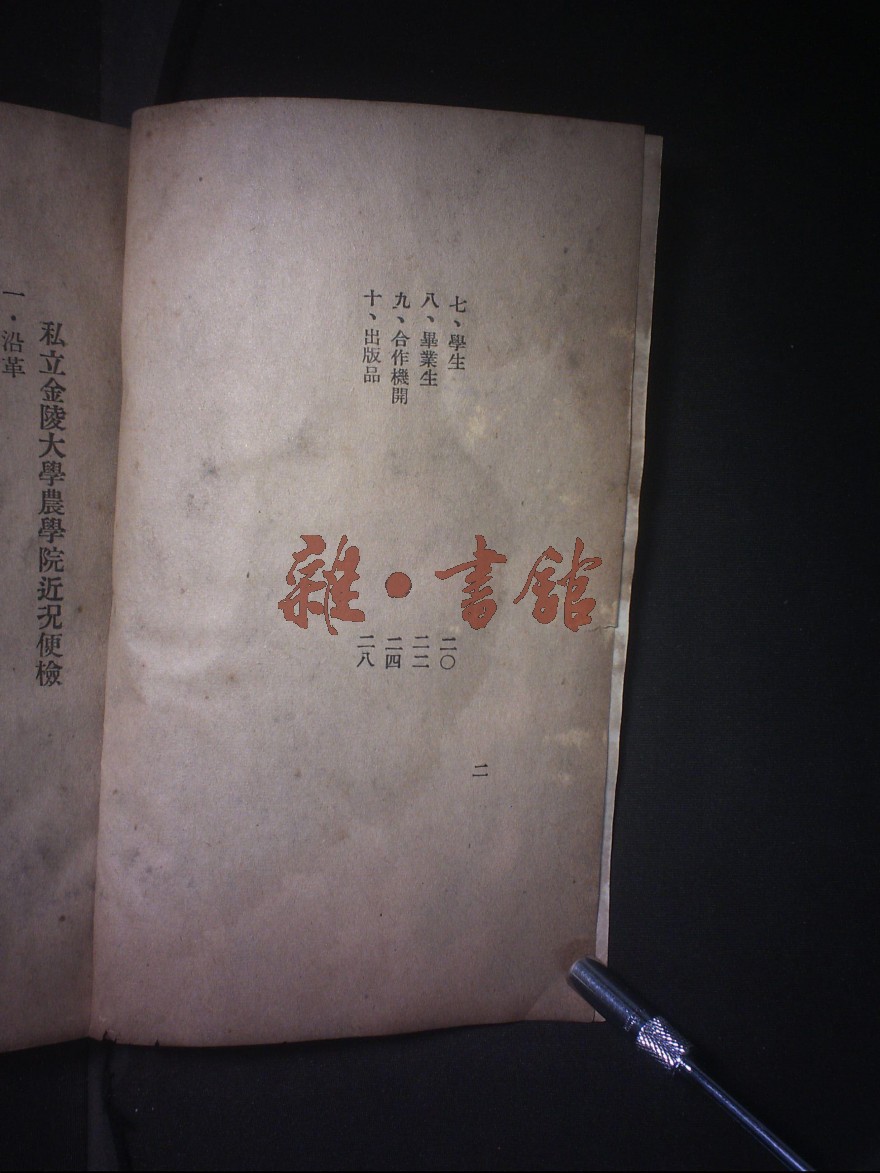 七、學生　二〇
八、畢業生　二二
九、合作機開　二四
十、出版品　二八
二
私立金陵大學農學院近況便檢
一．沿革
雜·書館